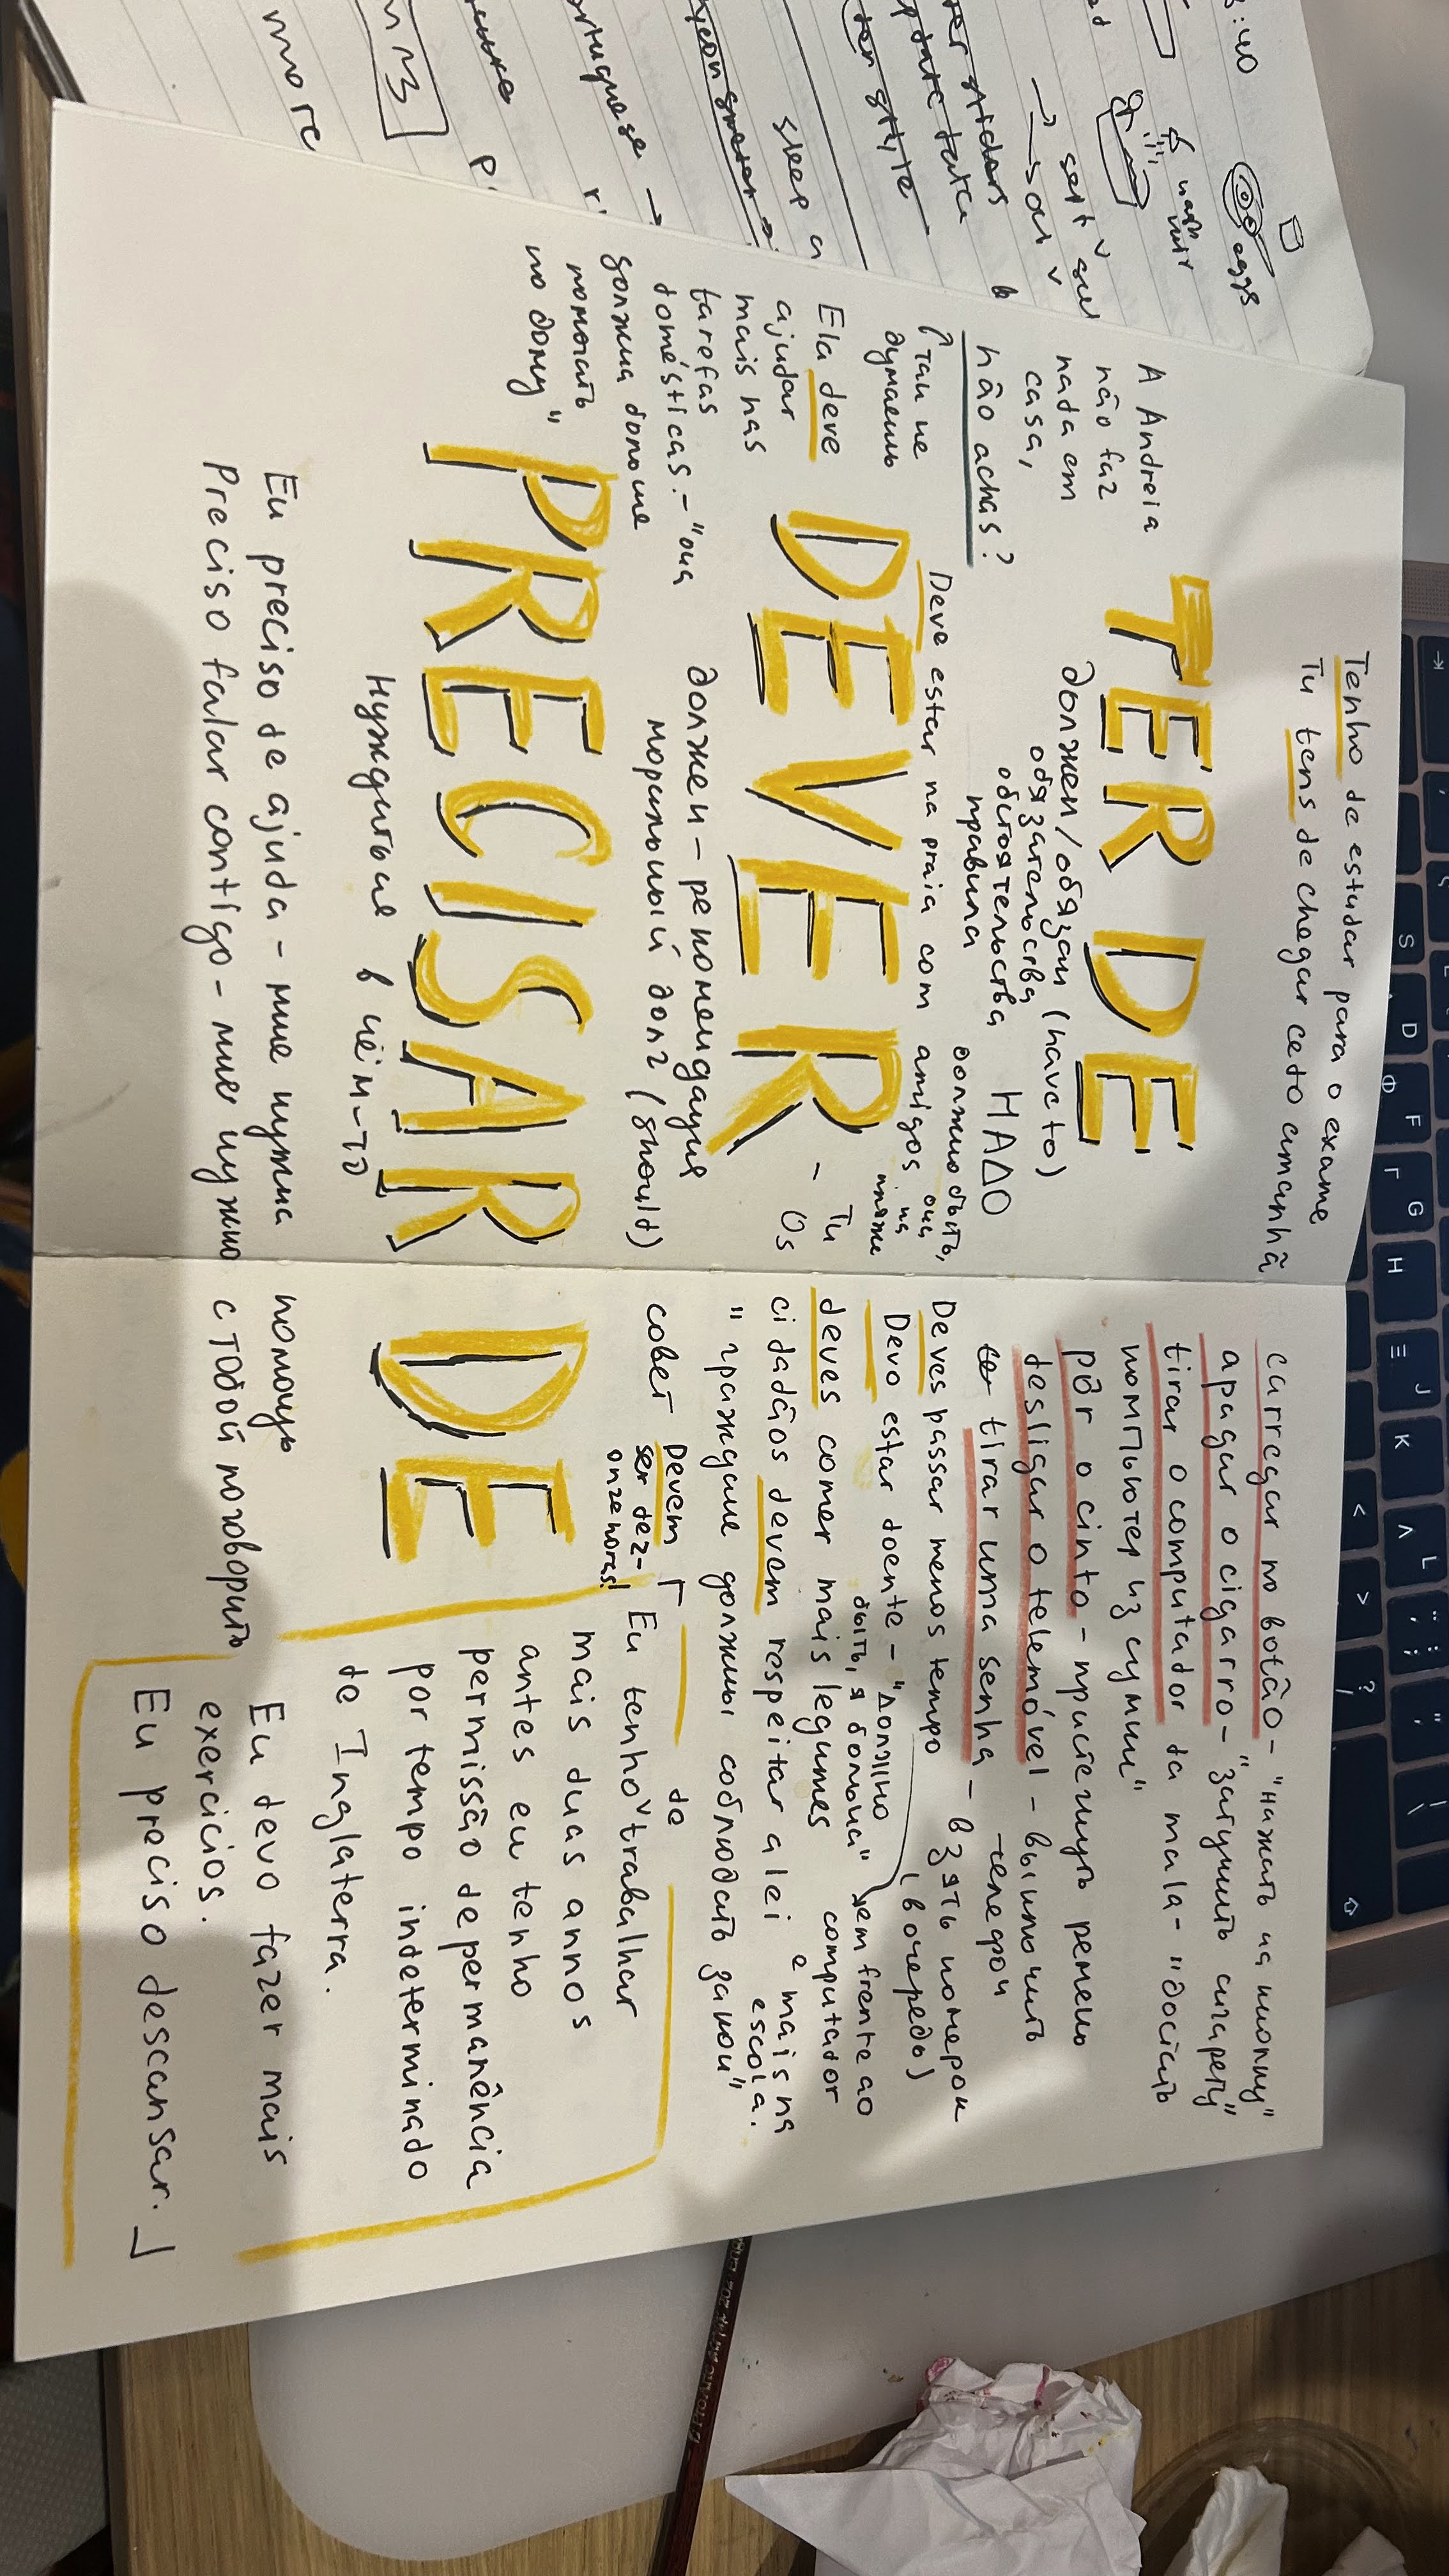 Tenho de estudar para o exame
Tu tens de chegar cedo amanhã
TER DE
должен/обязан (have to)
обязательства
обстоятельства
правила
НАДО
A Andreia
não faz
nada em
casa,
não achas?
так не
думаешь
Ela deve
ajudar
mais nas
tarefas
domésticas. - "она
должна больше
помогать
по дому"
Deve estar na praia com amigos
должно быть,
она
на
пляже
DEVER
должен - рекомендация
моральный долг (should)
- Tu
Os
PRECISAR DE
нуждаться в чём-то
Eu preciso de ajuda - мне нужна помощь
Preciso falar contigo - мне нужно с тобой поговорить
carregar no botão - "нажать на кнопку"
apagar o cigarro - "затушить сигарету"
tirar o computador da mala - "достать
компьютер из сумки"
pôr o cinto - пристегнуть ремень
desligar o telemóvel - выключить
телефон
ter tirar uma senha - взять номерок
(в очередь)
Deves passar menos tempo
em frente ao
computador
e mais na
escola.
Devo estar doente - "Должно
быть, я больна"
deves comer mais legumes
cidadãos devem respeitar a lei
"граждане должны соблюдать закон"
совет
Devem
ser dez-
onze horas!
Eu tenho de trabalhar
mais duas annos
antes eu tenho
permissão de permanência
por tempo indeterminado
de Inglaterra.
Eu devo fazer mais
exercicios.
Eu preciso descansar.
3:40
eggs
sleep
more
S
D
F
G
H
J
K
L